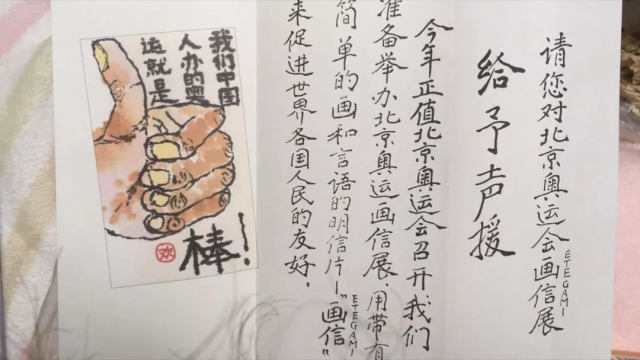 请您对北京奥运会画信展
ETEGAMI
给予声援
今年正值北京奥运会召开我们
准备举办北京奥运画信展.用带有
简单的画和言语的明信片—"画信"
ETEGAMI
来促进世界各国人民的友好。
我们中国
人办的奥
运就是
棒!